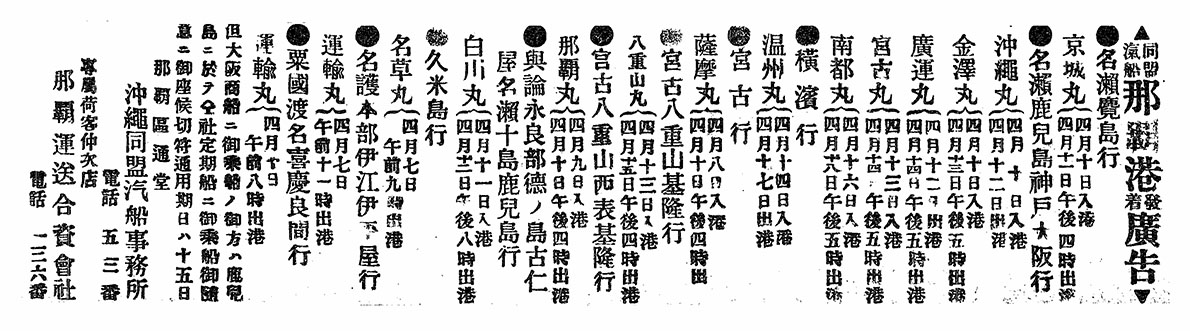 ▲同盟汽船那覇港發着廣告▼
●名瀬鹿島行
京城丸(四月十日入港 四月十二日午後四時出港
●名瀬鹿兒島神戸大阪行
沖繩丸(四月十日入港 四月十二日出港
金澤丸(四月十日入港 四月十三日午後五時出港
廣運丸(四月十二日入港 四月十四日午後五時出港
宮古丸(四月十三日入港 四月十四日午後五時出港
南都丸(四月十六日入港 四月十八日午後五時出港
●橫濱行
温州丸(四月十四日入港 四月十七日出港
●宮古行
薩摩丸(四月八日入港 四月十日午後四時出
●宮古八重山基隆行
八重山丸(四月十三日入港 四月十五日午後四時出港
●宮古八重山西表基隆行
那覇丸(四月九日入港 四月十日午後四時出港
●與論永良部德ノ島古仁屋名瀬十島鹿兒島行
白川丸(四月十一日入港 四月十二日午後八時出港
●久米島行
名草丸(四月七日午前九時出港
●名護本部伊江伊平屋行
運輸丸(四月七日午前十一時出港
●粟國渡名喜慶良間行
運輸丸(四月十日午前八時出港
但大阪商船ニ御乘船ノ御方ハ鹿兒
島ニ於テ仝社定期船ニ御乘船御隨
意ニ御座候切符通用期日ハ十五日
那覇區通堂
沖繩同盟汽船事務所
電話 五三番
專屬荷客仲次店
那覇運送合資會社
電話 一二六番